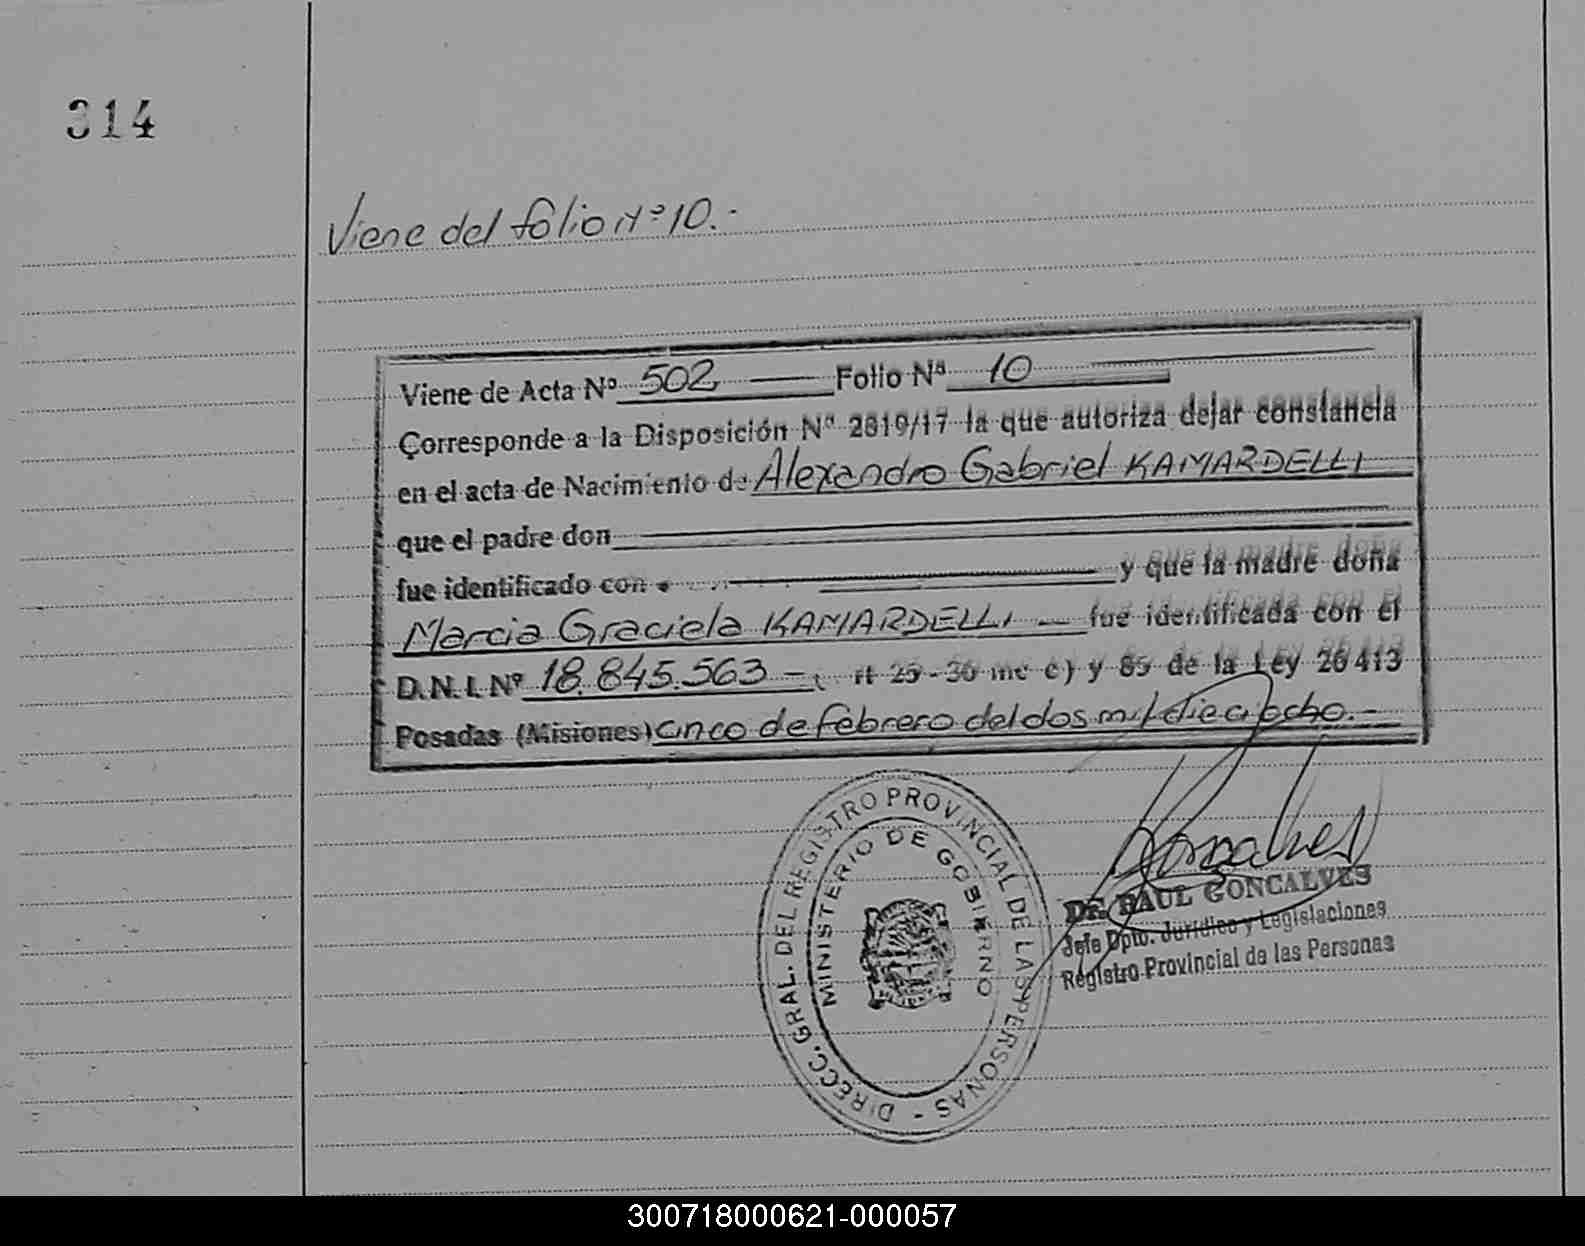 314
Viene del folio Nº 10.-
Viene de Acta Nº 502 Folio Nº 10
Corresponde a la Disposición Nº 2819/17 la que autoriza dejar constancia
en el acta de Nacimiento de Alexandro Gabriel KAMARDELLI
que el padre don
fue identificado con y que la madre doña
Marcia Graciela KAMARDELLI fue identificada con el
D.N.I. Nº 18.845.563 - 25 - 36 inc c) y 85 de la Ley 26413
Posadas (Misiones) cinco de febrero del dos mil dieciocho.-
DIRECC. GRAL. DEL REGISTRO PROVINCIAL DE LAS PERSONAS -
MINISTERIO DE GOBIERNO
Dr. RAUL GONCALVES
Jefe Dpto. Jurídico y Legislaciones
Registro Provincial de las Personas
300718000621-000057